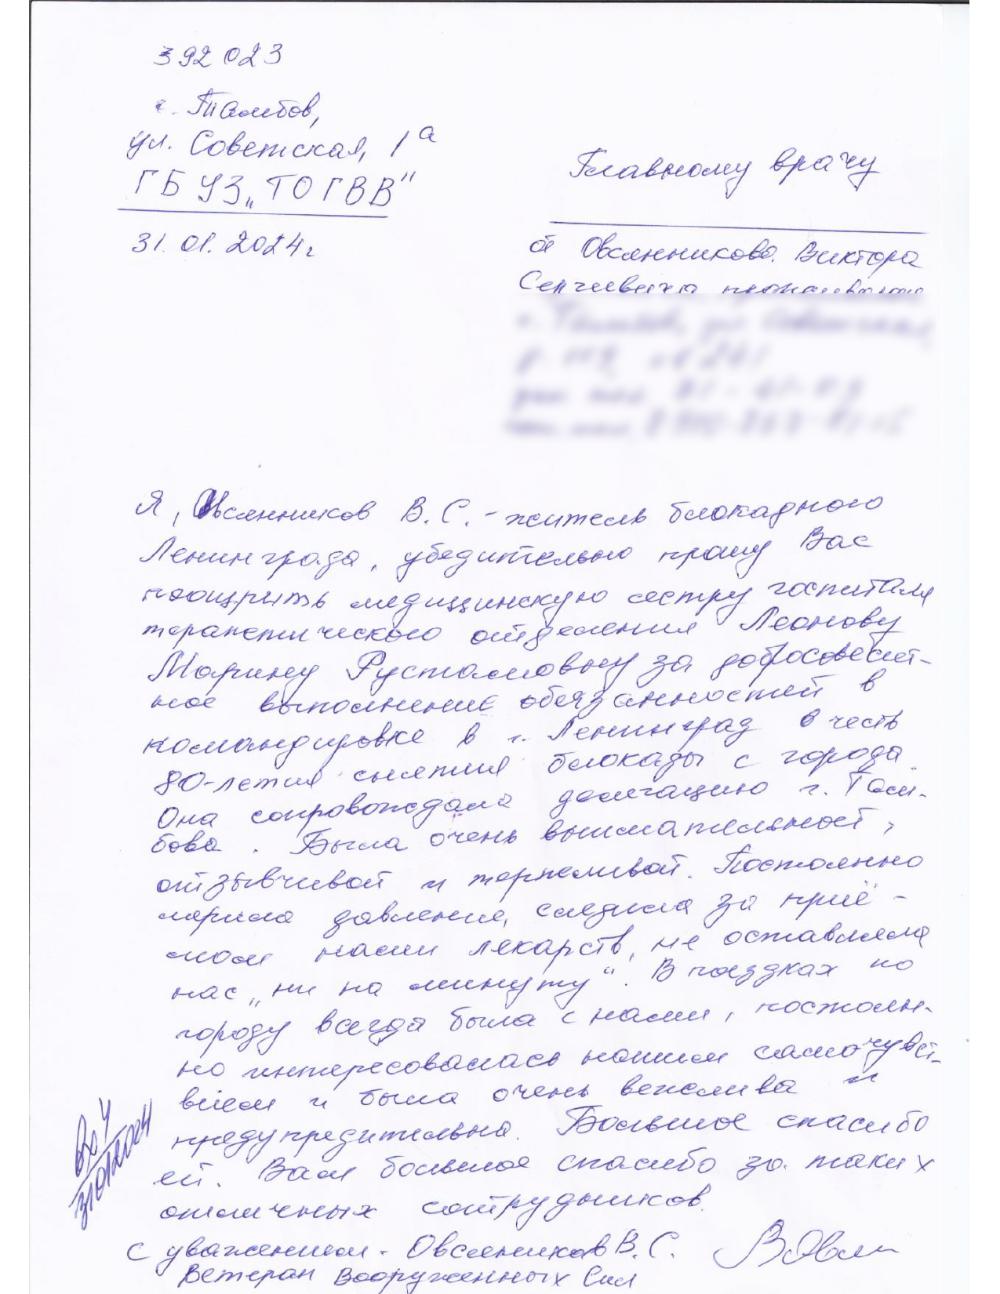 392023
г. Тамбов,
ул. Советская, 1а
ГБУЗ „ТОГВВ"
31.01.2024г
Главному врачу
от Овсянникова Виктора
Сергеевича проживающ
Я, Овсянников В.С. - житель блокадного
Ленинграда, убедительно прошу Вас
поощрить медицинскую сестру госпиталя
терапетического отделения Леонову
Марину Рустамовну за добросовест-
ное выполнение обязанностей в
командировке в г. Ленинград в честь
80-летия снятия блокады с города.
Она сопровождала делегацию г. Там-
бова. Была очень внимательной,
отзывчивой и терпеливой. Постоянно
мерила давление, следила за приё-
мом нами лекарств, не оставляла
нас „ни на минуту". В поездках по
городу всегда была с нами, постоян-
но интересовалась нашим самочувст-
вием и была очень вежлива и
предупредительна. Большое спасибо
ей. Вам большое спасибо за таких
отличных сотрудников.
с уважением - Овсянников В.С.
Ветеран Вооруженных Сил
Вх 4
31.01.2024